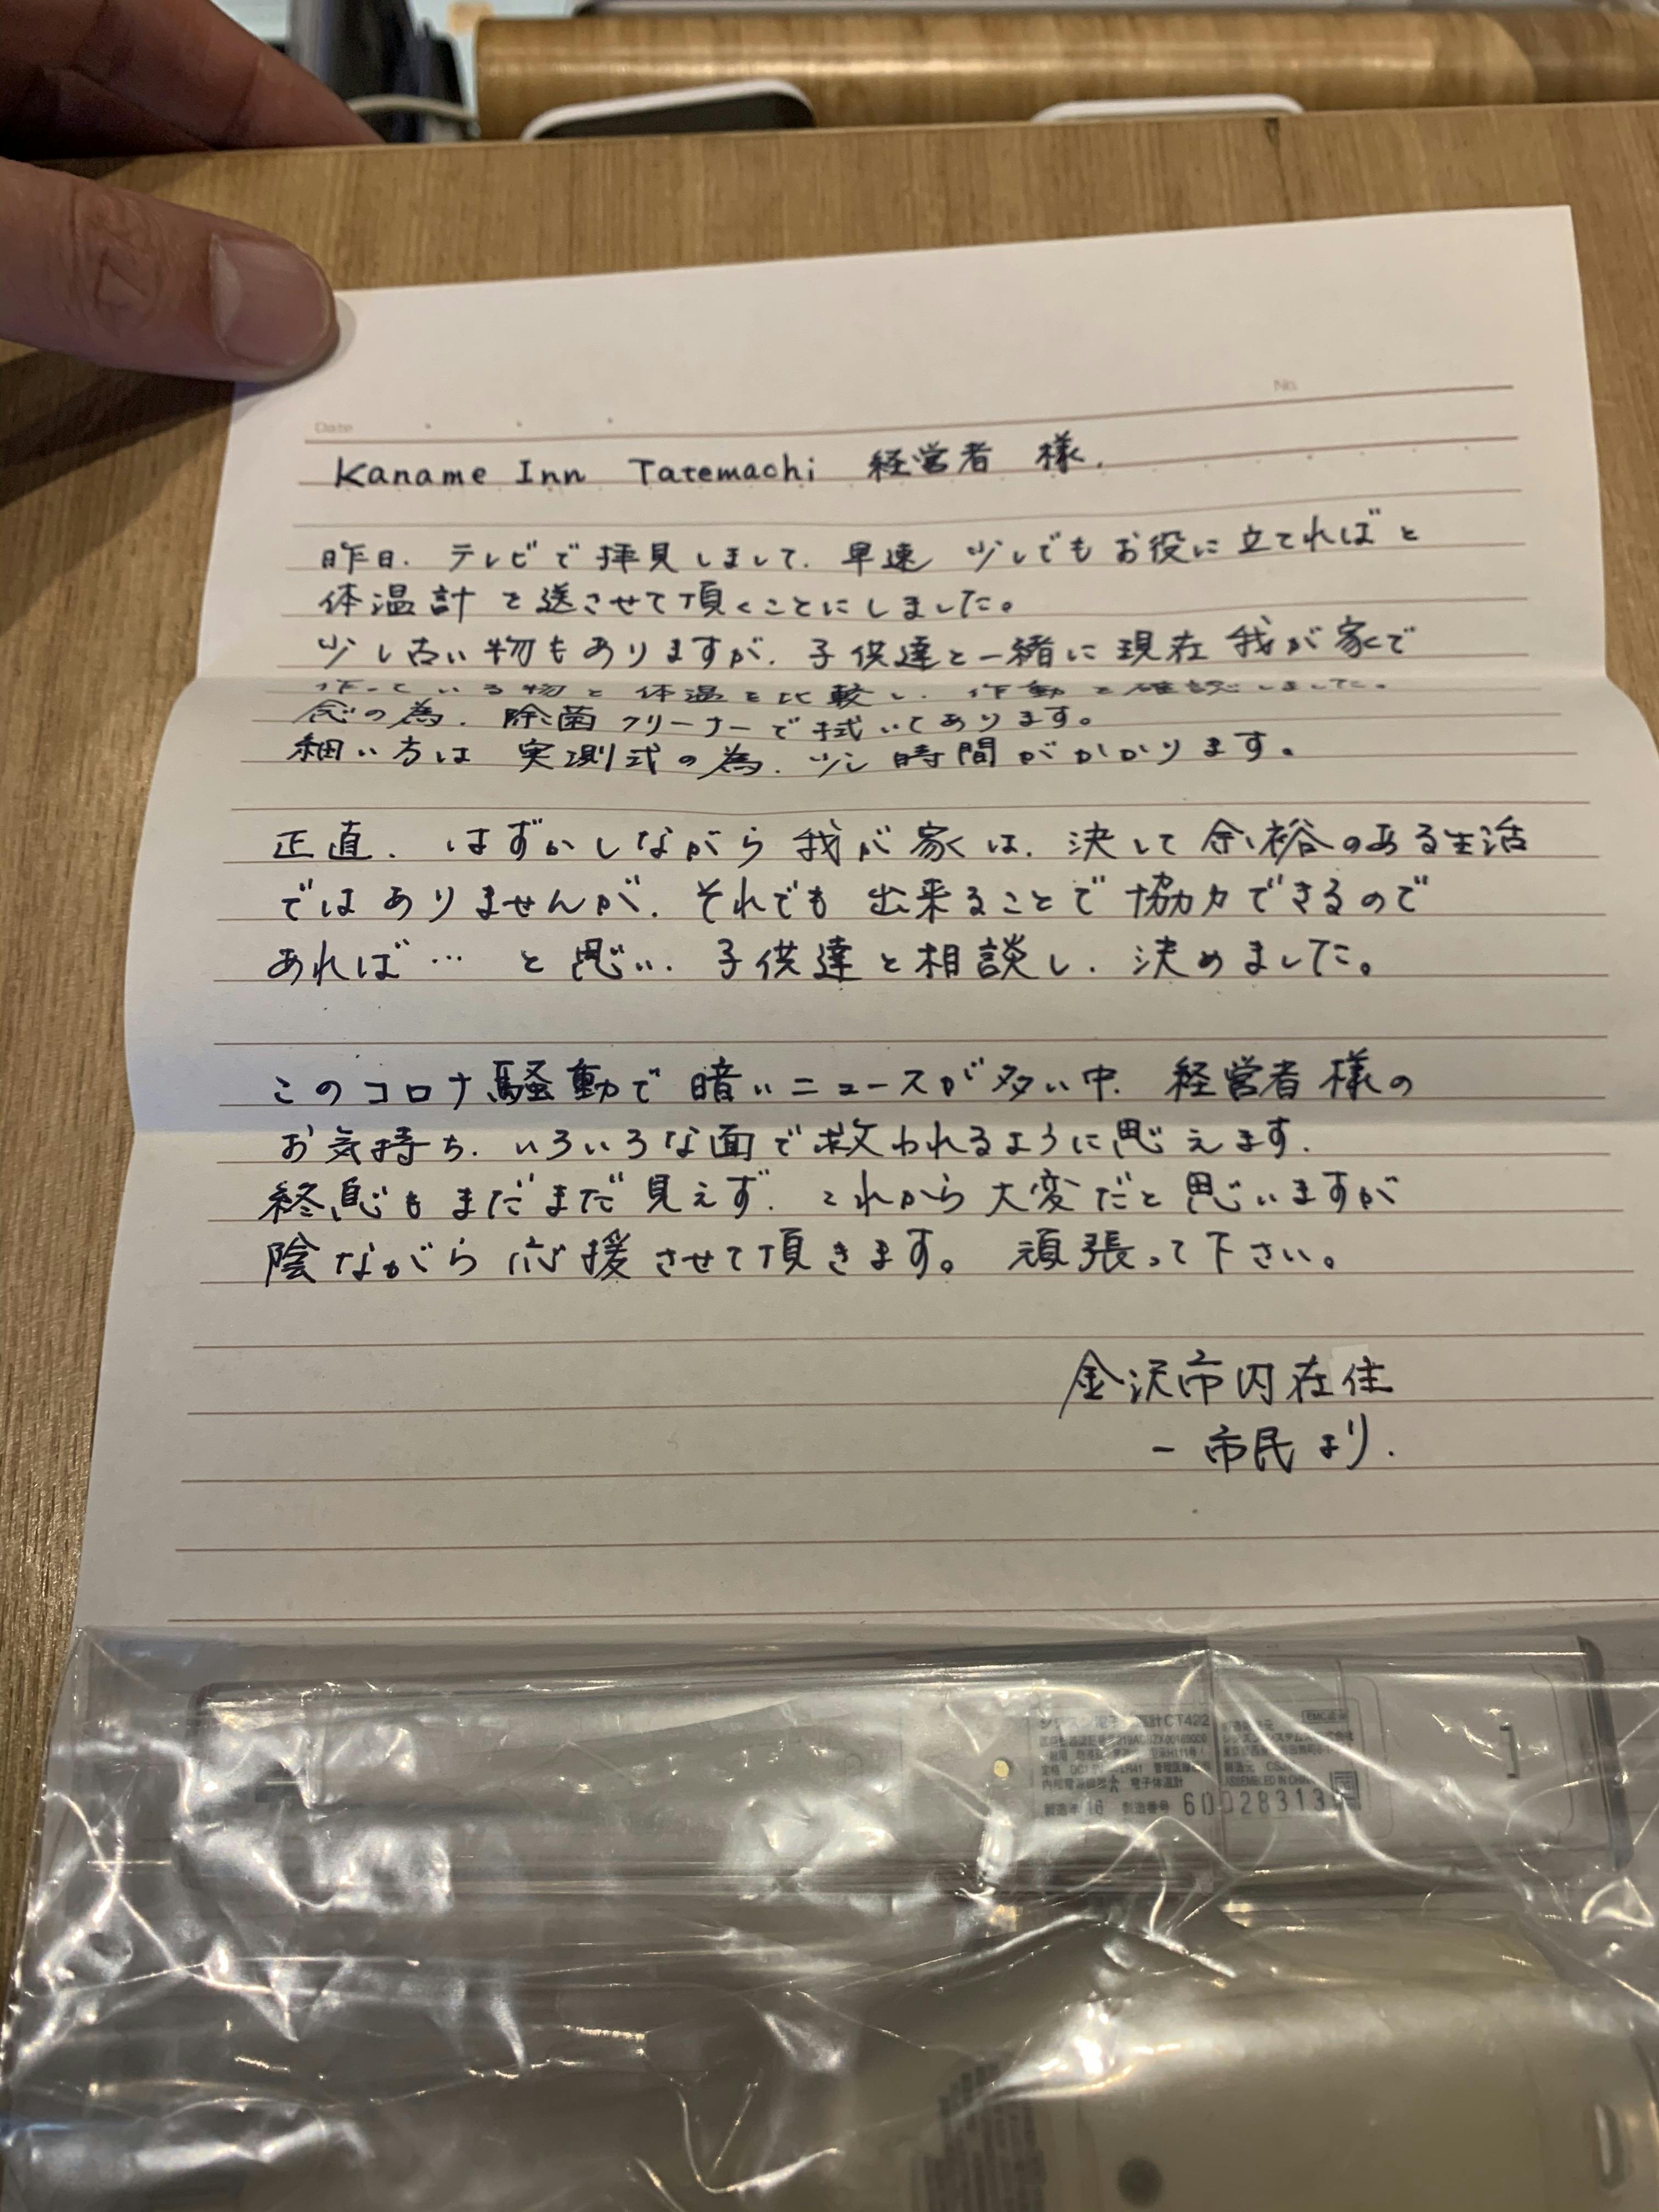 No.
Date
Kaname Inn Tatemachi 経営者 様.
昨日. テレビで拝見しまして. 早速 少しでもお役に立てればと
体温計を送させて頂くことにしました。
少し古い物もありますが. 子供達と一緒に現在我が家で
使っている物と体温を比較し. 作動を確認しました。
念の為. 除菌クリーナーで拭いてあります。
細い方は 実測式の為. 少し時間がかかります。
正直. はずかしながら我が家は. 決して余裕のある生活
ではありませんが. それでも出来ることで協力できるので
あれば… と思い. 子供達と相談し. 決めました。
このコロナ騒動で暗いニュースが多い中. 経営者様の
お気持ち. いろいろな面で救われるように思えます.
終息もまだまだ見えず. これから大変だと思いますが
陰ながら応援させて頂きます。 頑張って下さい。
金沢市内在住
一市民より.
CT422
電子体温計
ASSEMBLED IN CHINA
製造番号